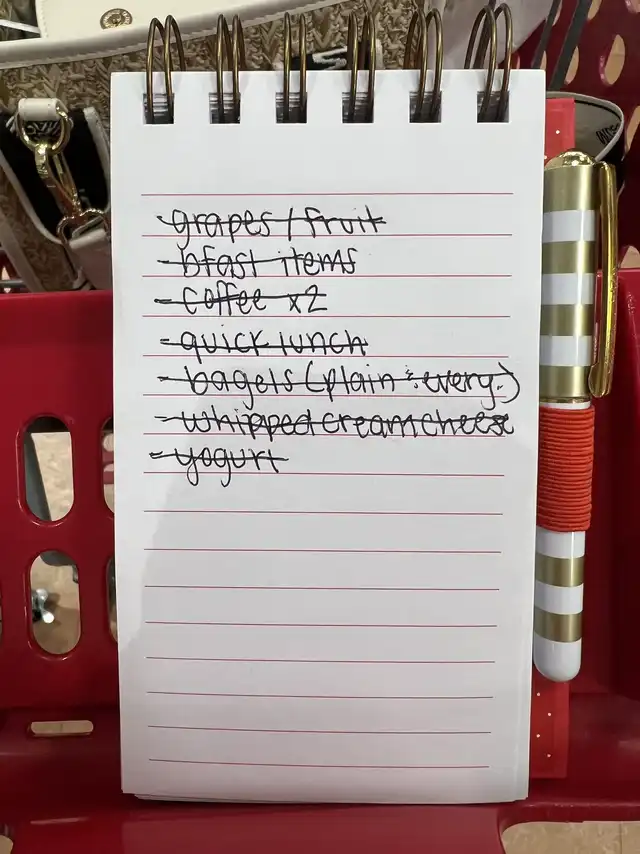 -grapes / fruit
-bfast items
-coffee x2
-quick lunch
-bagels (plain & every.)
-whipped cream cheese
-yogurt